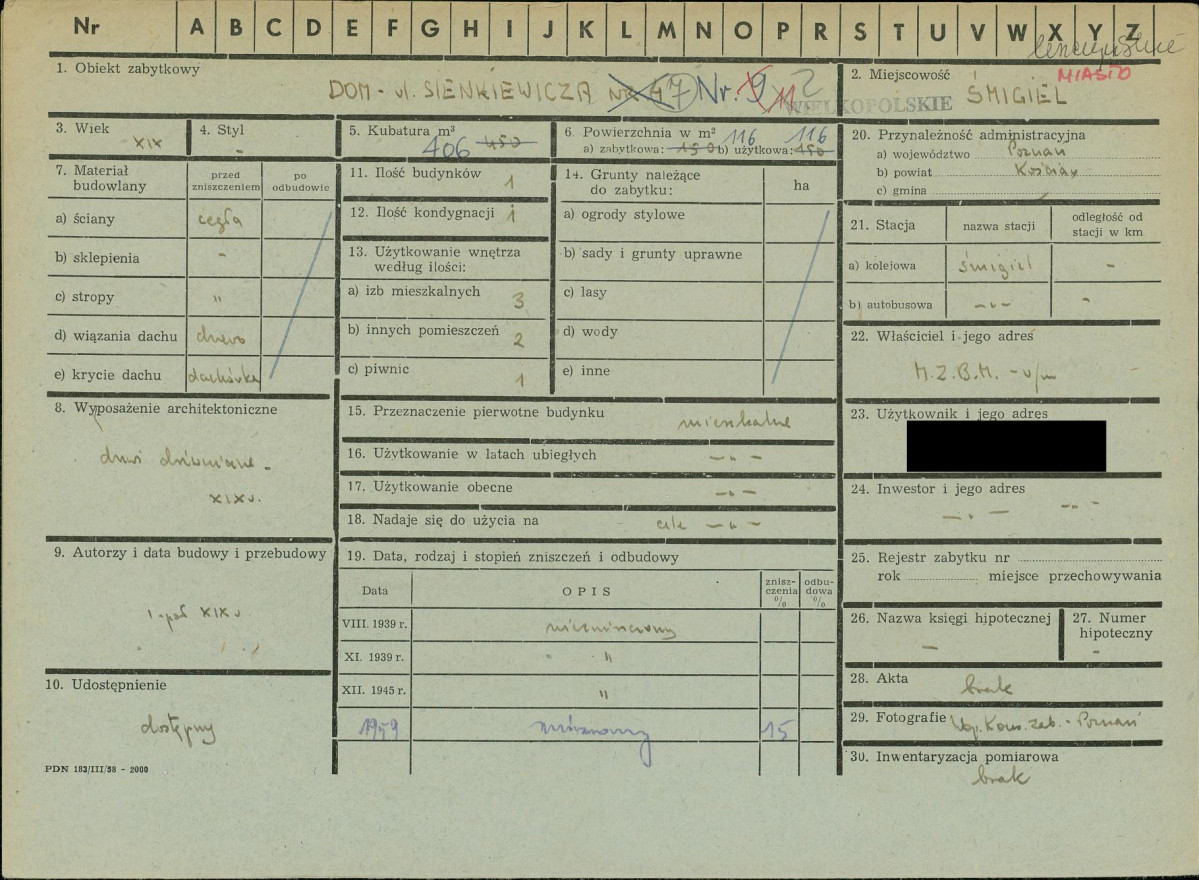 Nr A B C D E F G H I J K L M N O P R S T U V W X Y Z
1. Obiekt zabytkowy
DOM - ul. SIENKIEWICZA Nr 47 Nr. 9 11 2
WIELKOPOLSKIE
2. Miejscowość MIASTO
ŚMIGIEL
3. Wiek
XIX
4. Styl
-
5. Kubatura m³
406 450
6. Powierzchnia w m² 116 116
a) zabytkowa: 150 b) użytkowa: 450
20. Przynależność administracyjna
a) województwo Poznań
b) powiat Kościan
c) gmina
7. Materiał budowlany
przed zniszczeniem
po odbudowie
a) ściany cegła
b) sklepienia -
c) stropy "
d) wiązania dachu drewo
e) krycie dachu dachówka
11. Ilość budynków 1
12. Ilość kondygnacji 1
13. Użytkowanie wnętrza
według ilości:
a) izb mieszkalnych 3
b) innych pomieszczeń 2
c) piwnic 1
14. Grunty należące
do zabytku:
ha
a) ogrody stylowe
b) sady i grunty uprawne
c) lasy
d) wody
e) inne
21. Stacja
nazwa stacji
odległość od
stacji w km
a) kolejowa śmigiel -
b) autobusowa - " - -
22. Właściciel i jego adres
M.Z.B.M. - w/m
8. Wyposażenie architektoniczne
drzwi
XIX w.
15. Przeznaczenie pierwotne budynku mieszkalne
16. Użytkowanie w latach ubiegłych - " -
17. Użytkowanie obecne - " -
18. Nadaje się do użycia na cele - " -
23. Użytkownik i jego adres
24. Inwestor i jego adres
- " - - " -
9. Autorzy i data budowy i przebudowy
1-poł XIX w
19. Data, rodzaj i stopień zniszczeń i odbudowy
Data
OPIS
znisz-
czenia
%
odbu-
dowa
%
VIII. 1939 r.
XI. 1939 r. "
XII. 1945 r. "
1959 15
25. Rejestr zabytku nr
rok miejsce przechowywania
26. Nazwa księgi hipotecznej
-
27. Numer
hipoteczny
-
28. Akta
brak
10. Udostępnienie
dostępny
29. Fotografie Woj. Kons. Zab. - Poznań
30. Inwentaryzacja pomiarowa
brak
PDN 183/III/58 - 2000